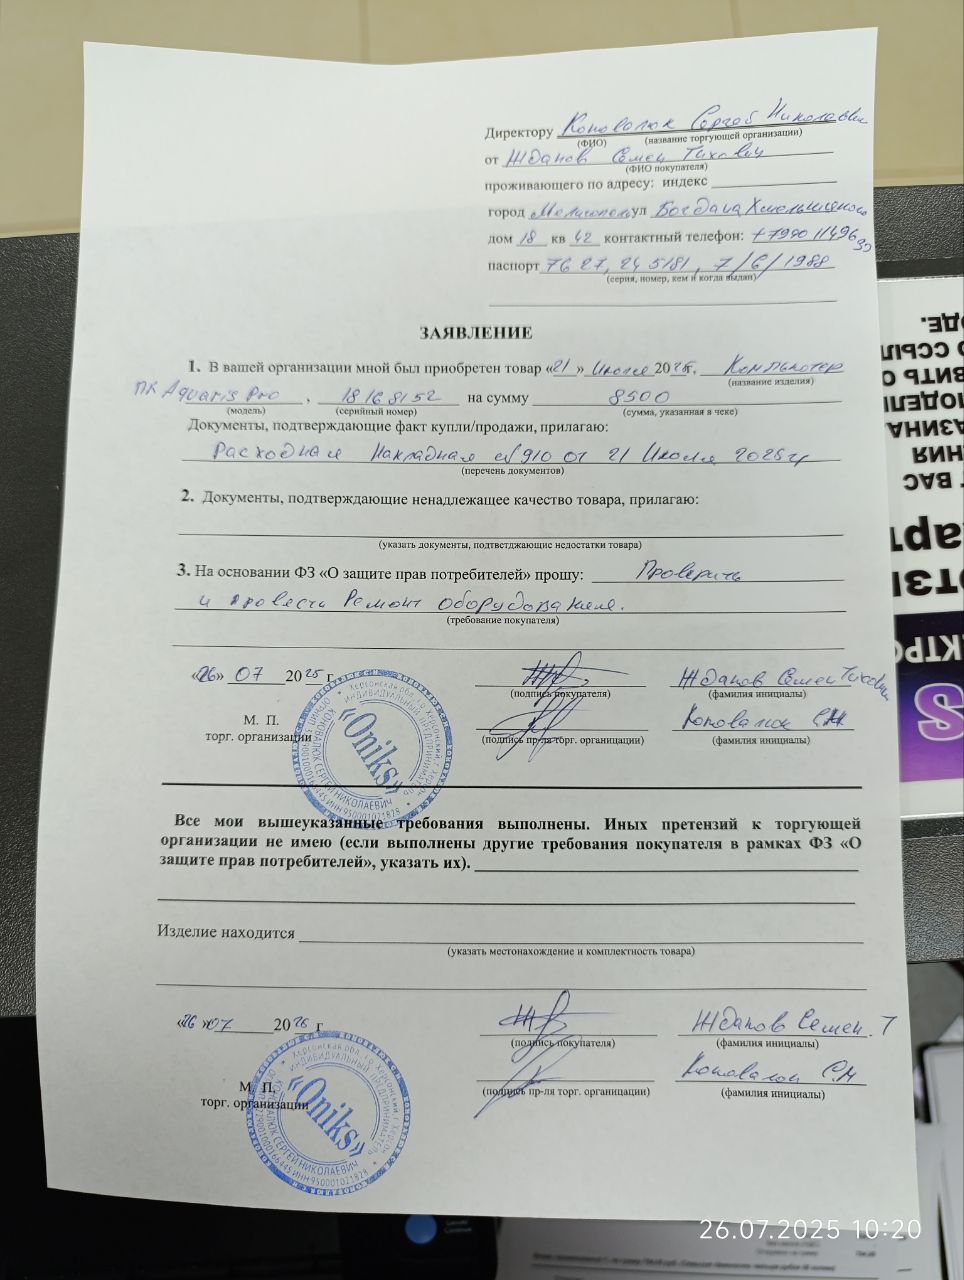 Директору Коновалюк Сергей Николаевич
(ФИО) (название торгующей организации)
от Жданов Семен Тихович
(ФИО покупателя)
проживающего по адресу: индекс
город Мелитополь ул Богдана Хмельницкого
дом 18 кв 42 контактный телефон: +7990 1149630
паспорт 76 27, 24 5181, 7/6/1988
(серия, номер, кем и когда выдан)
ЗАЯВЛЕНИЕ
1. В вашей организации мной был приобретен товар «21» Июля 2025г, Компьютер
(название изделия)
ПК Aquaris Pro, 18168152 на сумму 8500
(модель) (серийный номер) (сумма, указанная в чеке)
Документы, подтверждающие факт купли/продажи, прилагаю:
Расходная Накладная №910 от 21 Июля 2025г
(перечень документов)
2. Документы, подтверждающие ненадлежащее качество товара, прилагаю:
(указать документы, подтветджающие недостатки товара)
3. На основании ФЗ «О защите прав потребителей» прошу: Проверить
и провести Ремонт оборудования.
(требование покупателя)
«26» 07 2025 г Жданов Семен Тихович
(подпись покупателя) (фамилия инициалы)
М. П. Коновалюк С.Н
торг. организации (подпись пр-ля торг. органицации) (фамилия инициалы)
«Oniks»
ИНДИВИДУАЛЬНЫЙ ПРЕДПРИНИМАТЕЛЬ
КОНОВАЛЮК СЕРГЕЙ НИКОЛАЕВИЧ
ИНН 950001021828
Все мои вышеуказанные требования выполнены. Иных претензий к торгующей
организации не имею (если выполнены другие требования покупателя в рамках ФЗ «О
защите прав потребителей», указать их).
Изделие находится
(указать местонахождение и комплектность товара)
«26» 07 2025 г Жданов Семен.Т
(подпись покупателя) (фамилия инициалы)
М. П. Коновалюк С.Н
торг. организации (подпись пр-ля торг. органицации) (фамилия инициалы)
«Oniks»
ИНДИВИДУАЛЬНЫЙ ПРЕДПРИНИМАТЕЛЬ
КОНОВАЛЮК СЕРГЕЙ НИКОЛАЕВИЧ
ИНН 950001021828
26.07.2025 10:20